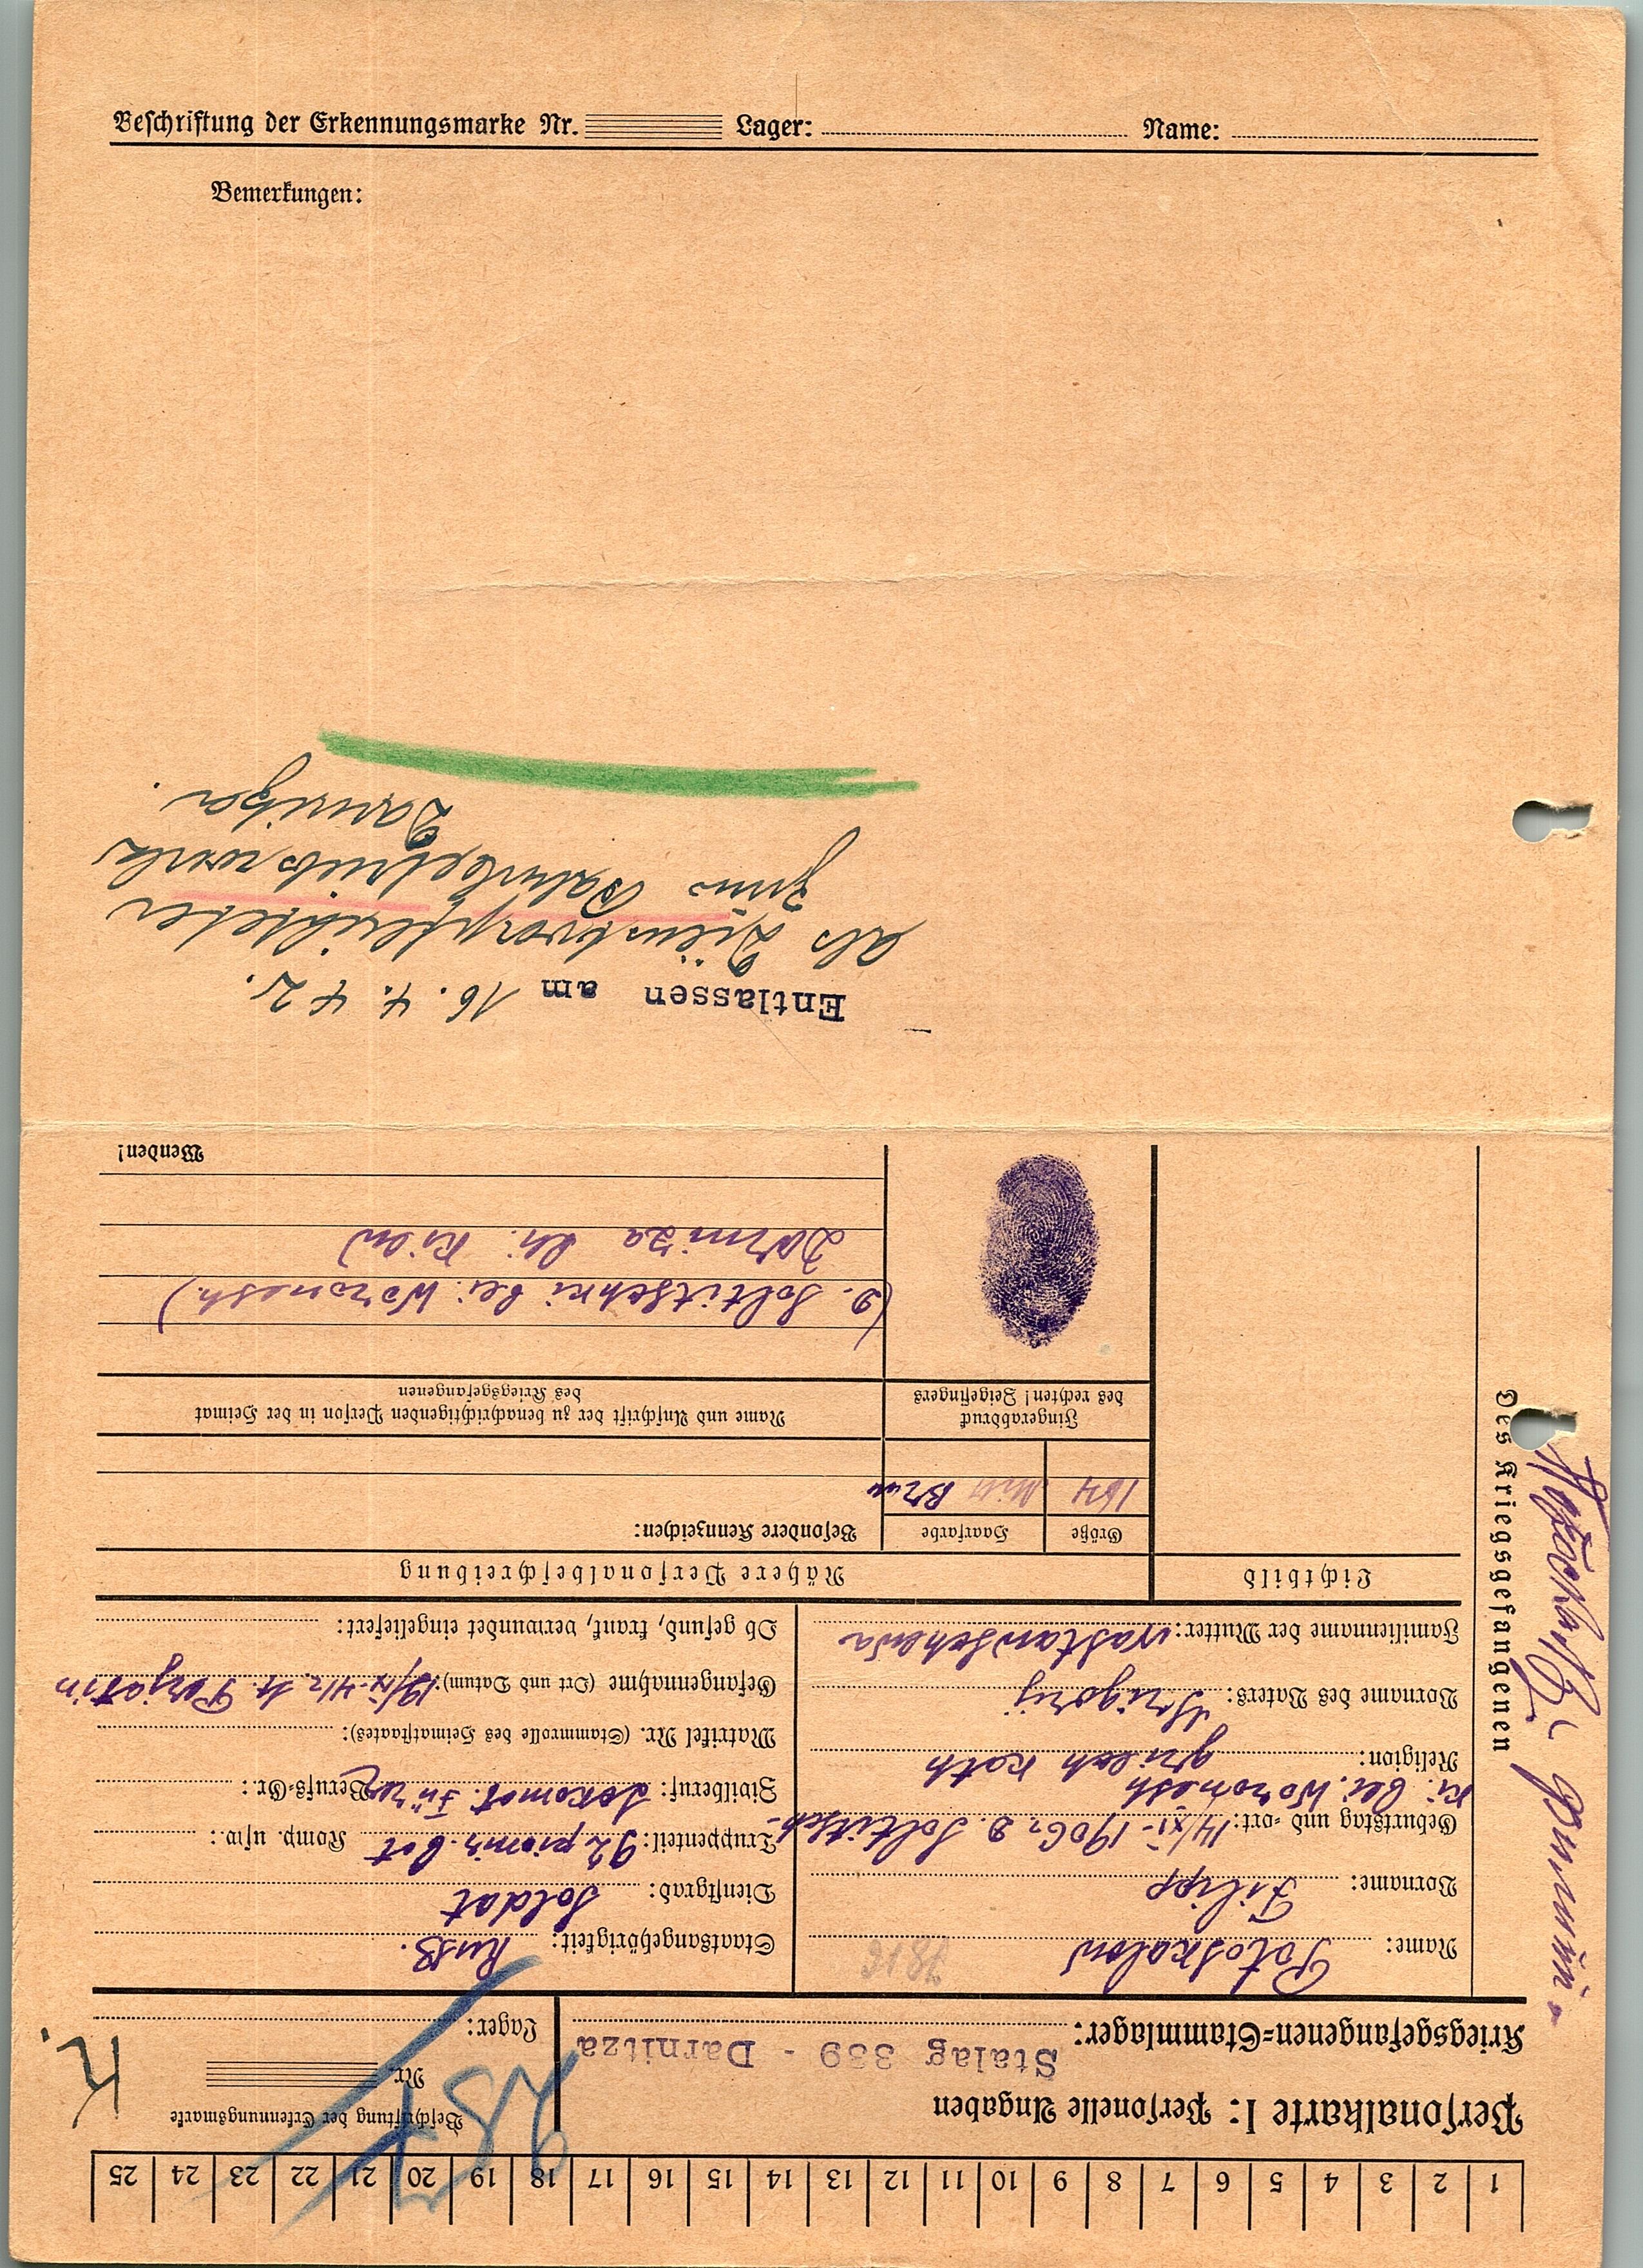 Beschriftung der Erkennungsmarke Nr. Lager: Name:
Bemerkungen:
1 2 3 4 5 6 7 8 9 10 11 12 13 14 15 16 17 18 19 20 21 22 23 24 25
Personalkarte I: Personelle Angaben
Beschriftung der Erkennungsmarke
Kriegsgefangenen-Stammlager: Stalag 339 - Darnitza
Nr.
Lager:
K.
Des Kriegsgefangenen
Name: Potoskalow
Vorname: Filipp
Geburtstag und -ort: 14/XI-1906, D. Soltitsch-
ki. bei. Woronesh
Religion: griech kath
Vorname des Vaters: Grigorij
Familienname der Mutter:
Staatsangehörigkeit: Russ.
Dienstgrad: Soldat
Truppenteil: 92 pionir. bat Komp. usw.:
Zivilberuf: Lokomot. Fürer Berufs-Gr.:
Matrikel Nr. (Stammrolle des Heimatstaates):
Gefangennahme (Ort und Datum): 19/IX-41 Perjatin
Ob gesund, krank, verwundet eingeliefert:
Lichtbild
Nähere Personalbeschreibung
Größe Haarfarbe Besondere Kennzeichen:
164 Braun
Fingerabdruck
des rechten! Zeigefingers
Name und Anschrift der zu benachrichtigenden Person in der Heimat
des Kriegsgefangenen
(D. Soltitschki bei. Woronesh.)
Darniza bei. Kiew
Wenden!
Entlassen am 16. 4. 42.
als Dienstverpflichteter
zum Bahnbetriebswerk
Darnitza.